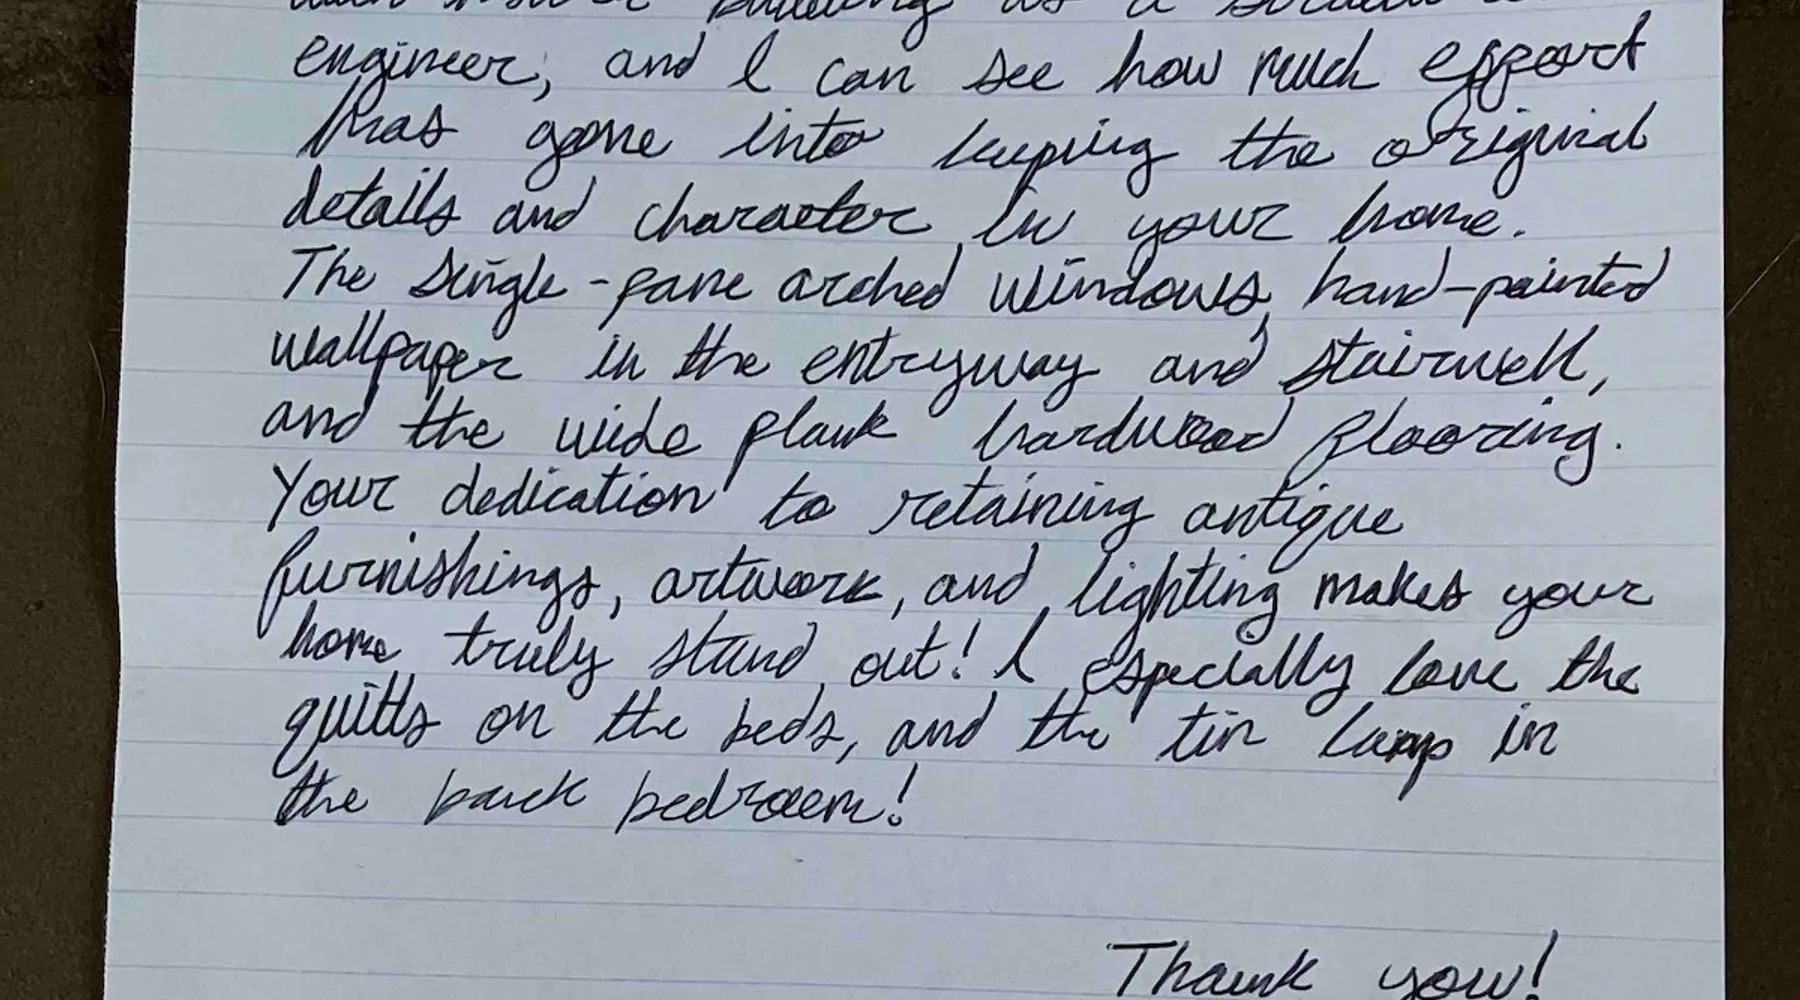 building as a
engineer, and I can see how much effort
has gone into keeping the original
details and character in your home.
The single-pane arched windows, hand-painted
wallpaper in the entryway and stairwell,
and the wide plank hardwood flooring.
Your dedication to retaining antique
furnishings, artwork, and lighting makes your
home truly stand out! I especially love the
quilts on the beds, and the tin lamp in
the back bedroom!
Thank you!